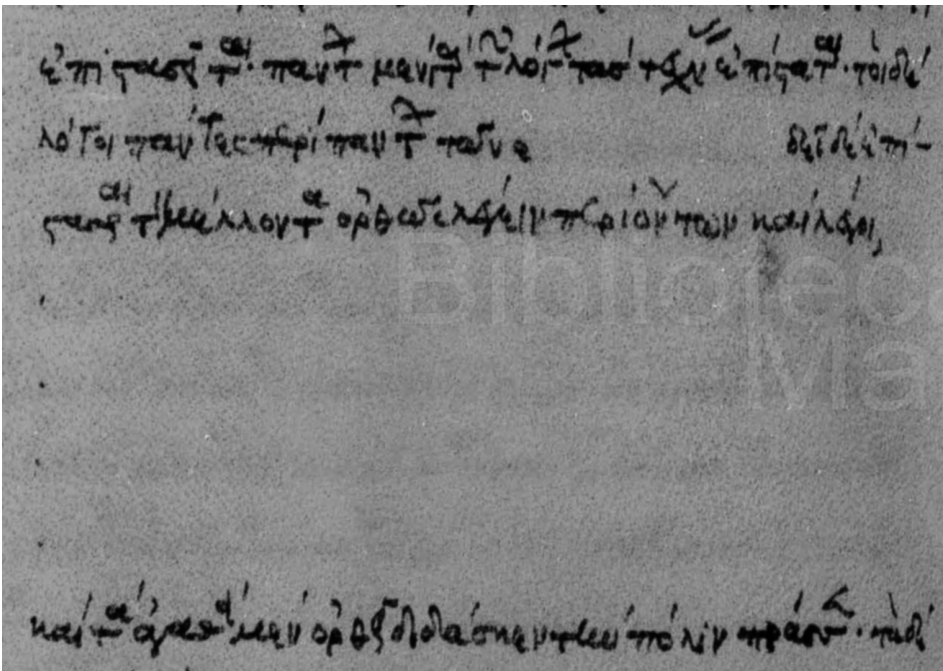 ἐπίστασθαι· πάντων μὲν γὰρ τῶν λόγων τὰς τέχνας ἐπίσταται· τοὶ δὲ
λόγοι πάντες περὶ πάντων τῶν ε δεῖ δὲ ἐπί-
στασθαι τὸν μέλλοντα ὀρθῶς λέγειν περὶ ὧν των καὶ λέγοι,
καὶ τὰ ἀγαθὰ μὲν ὀρθῶς διδάσκεν τὰν πόλιν πράσσεν· τὰ δὲ
Biblioteca
Ma